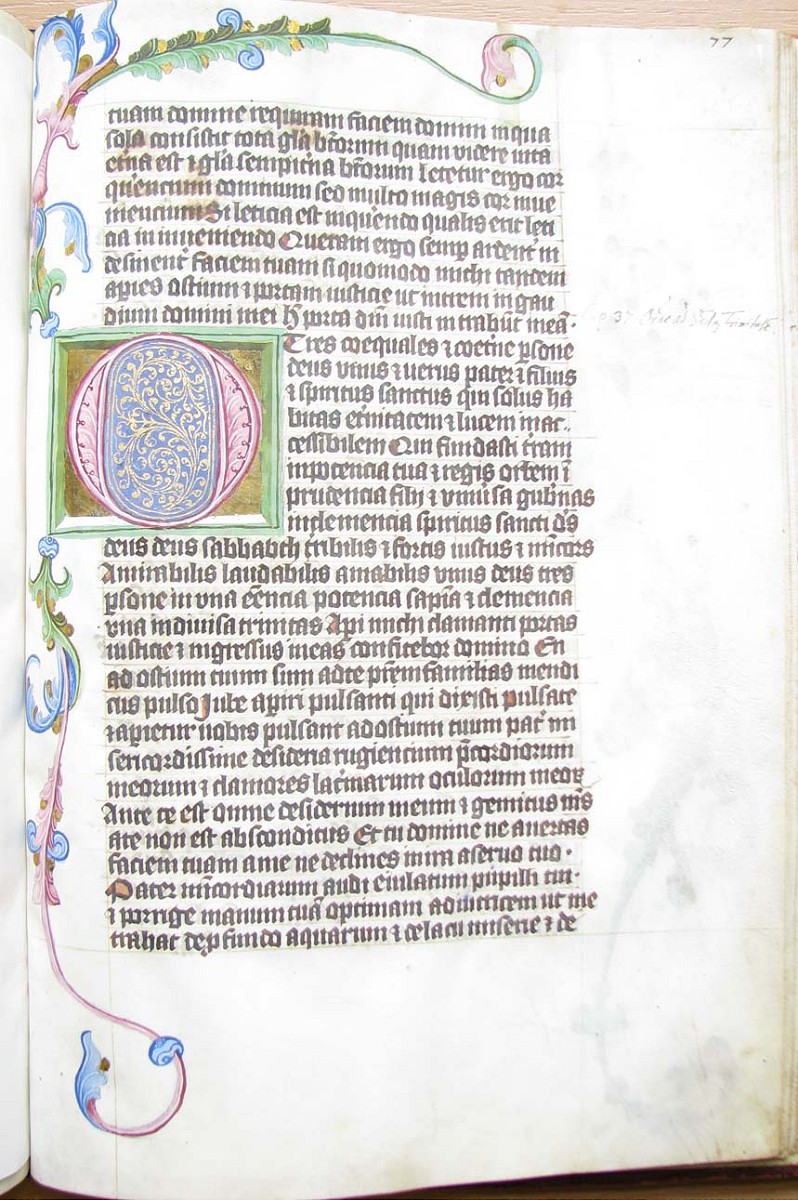 77
tuam domine requiram faciem domini in qua
sola consistit tota gl̃a btõrum quam videre vita
et̃na est ⁊ gl̃a sempit̃na btõrum Letetur ergo cor
querencium dominum sed multo magis cor inue
niencium Si leticia est in querendo qualis erit leti
cia in inueniendo Queram ergo semp ardent̾ in
desinent̾ faciem tuam si quomodo michi tandem
apies ostium ⁊ portam iusticie ut intrem in gau
dium domini mei hec porta dñi iusti intrabũt in eã
O Tres coequales ⁊ coet̾ne ꝑsone
deus vnus ⁊ uerus pater ⁊ filius
⁊ spiritus sanctus qui solus ha
bitas et̾nitatem ⁊ lucem inac
cessibilem Qui fundasti t̾ram
in potencia tua ⁊ regis orbem ĩ
prudencia filij ⁊ vniu̾sa gub̾nas
in clemencia spiritus sancti dñs
deus deus sabbaoth t̾ribilis ⁊ fortis iustus ⁊ mĩcors
Amirabilis laudabilis amabilis vnus deus tres
ꝑsone in vna eẽncia potencia sapĩa ⁊ clemencia
vna indiuisa trinitas Api michi clamanti portas
iusticie ⁊ ingressus in eas confitebor domino En
ad ostium tuum sum ad te pr̃em familias mendi
cus pulso Jube apiri pulsanti qui dixisti pulsate
⁊ apietur uobis pulsant ad ostium tuum pat̾ mi
sericordissime desideria rugiencium p̃cordiorum
meorum ⁊ clamores lac̾marum oculorum meoꝝ
Ante te est omne desiderium meum ⁊ gemitus m̃s
a te non est absconditus Et tu domine ne auertas
faciem tuam a me ne declines in ira a seruo tuo
Pater mĩcordiarum audi eiulatum pupilli tui
⁊ porrige manum tuã optimam adiutricem ut me
trahat de ꝓfundo aquarum ⁊ de lacu miserie ⁊ de